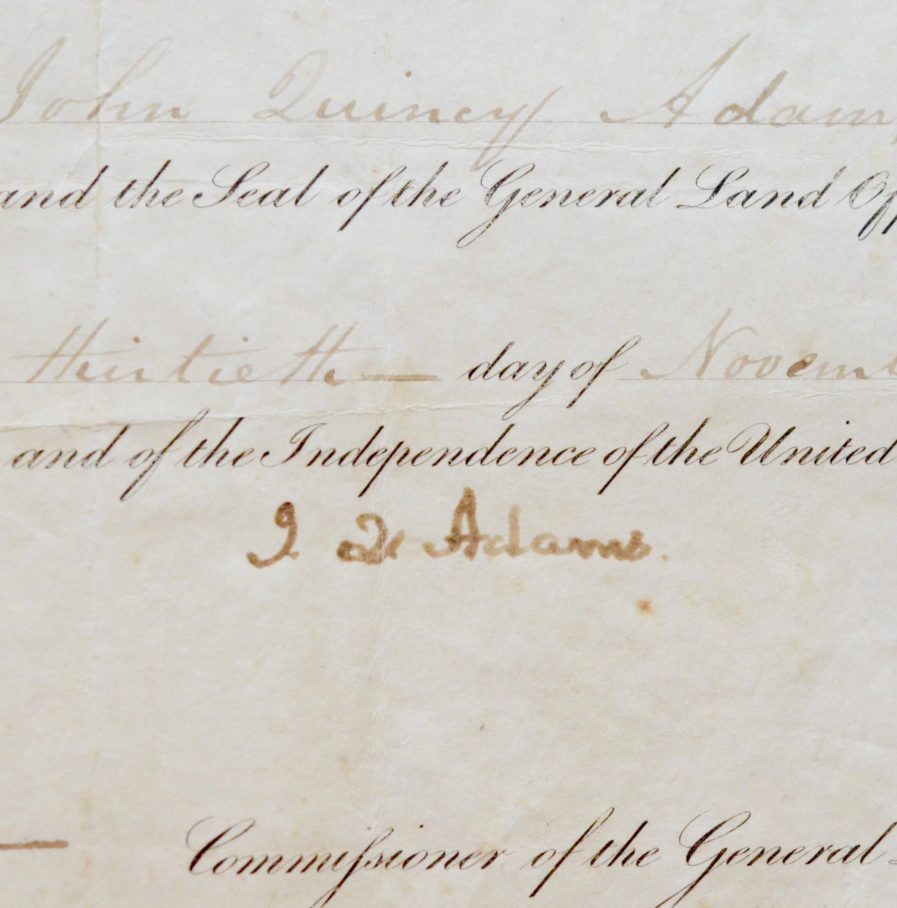 John Quincy Adams
and the Seal of the General Land
Thirtieth — day of Novem
and of the Independence of the United
J. Q. Adams.
— Commissioner of the General